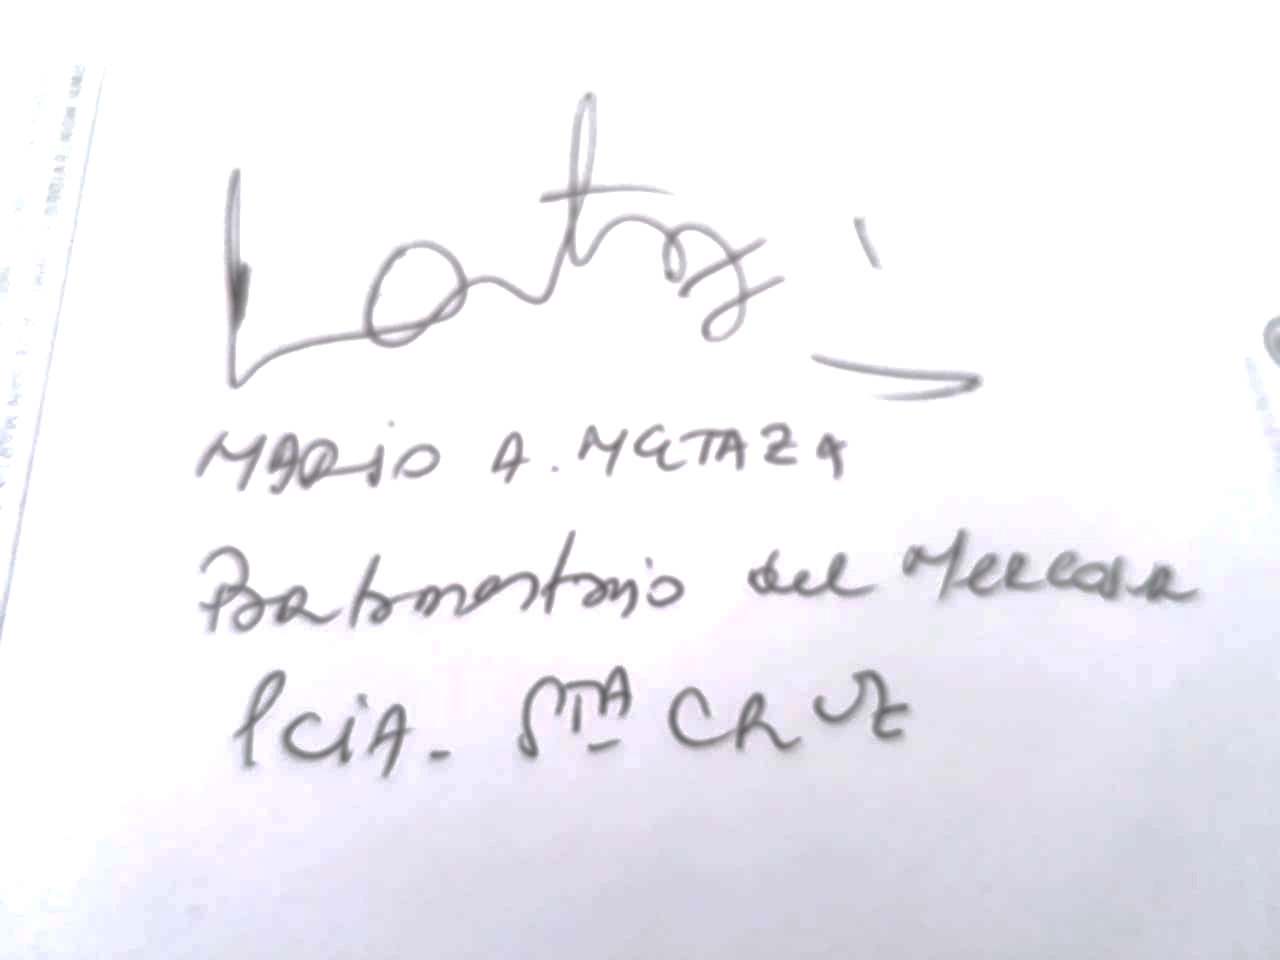 MARIO A. METAZA
Parlamentario del Mercosur
PCIA. STA CRUZ